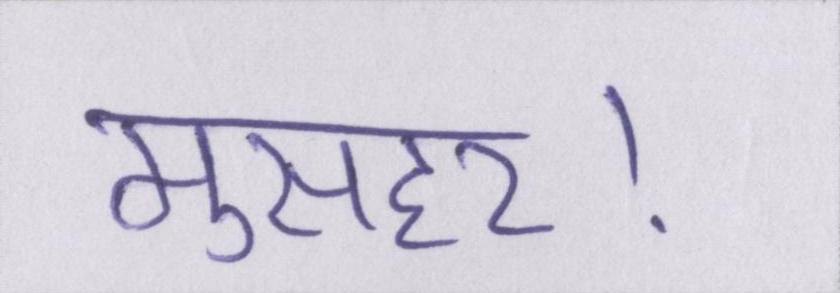 मुसहर!